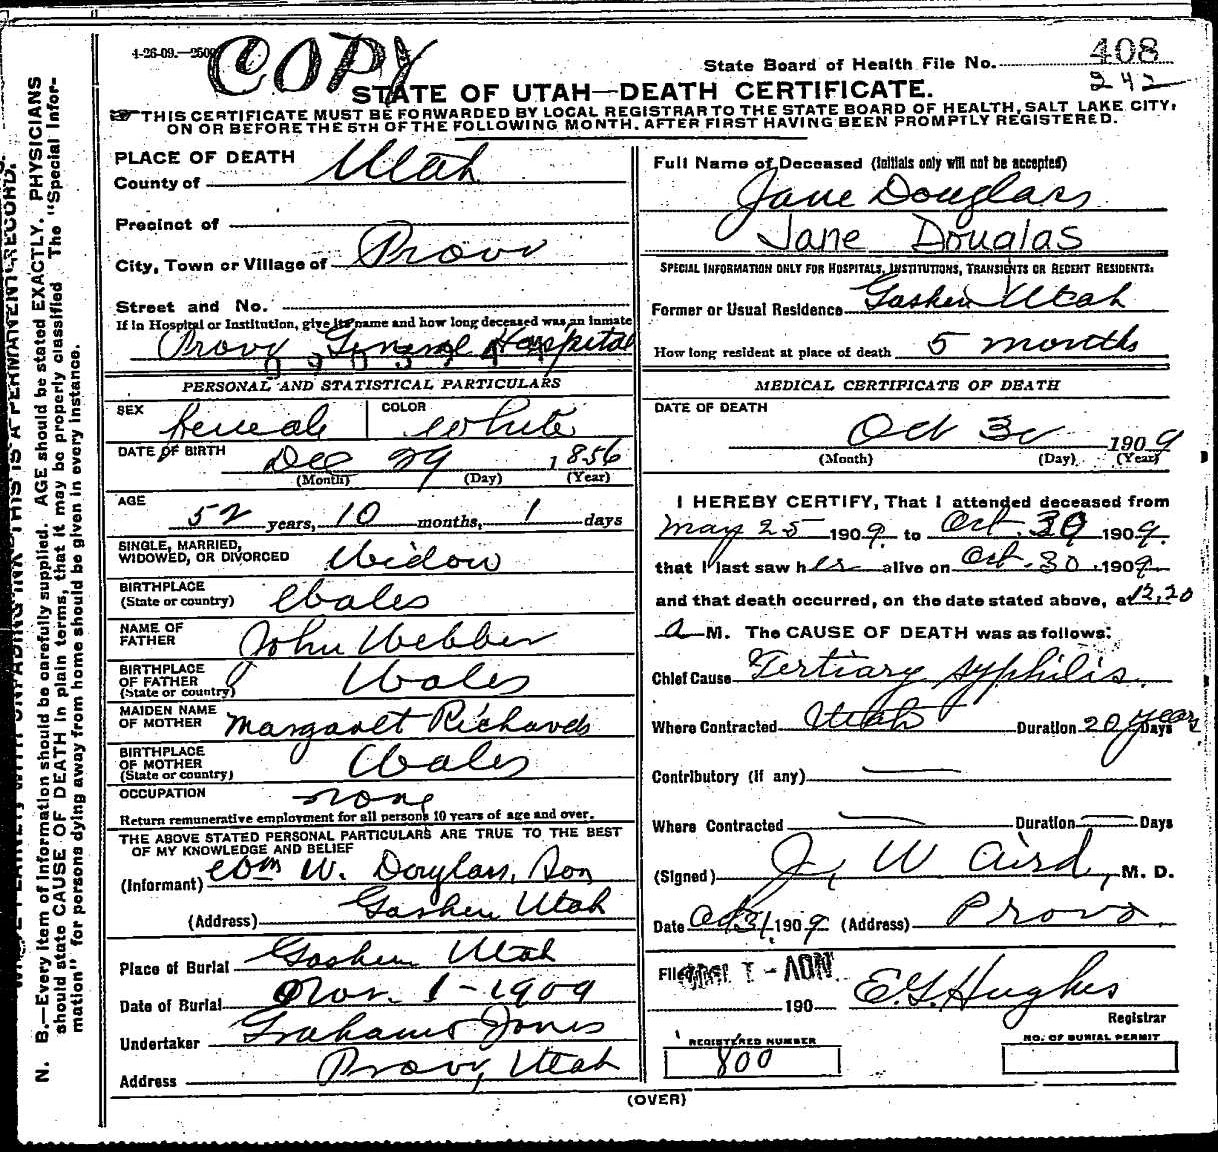 4-26-09.—250
COPY
State Board of Health File No. 408
242
STATE OF UTAH—DEATH CERTIFICATE.
THIS CERTIFICATE MUST BE FORWARDED BY LOCAL REGISTRAR TO THE STATE BOARD OF HEALTH, SALT LAKE CITY,
ON OR BEFORE THE 5TH OF THE FOLLOWING MONTH, AFTER FIRST HAVING BEEN PROMPTLY REGISTERED.
PLACE OF DEATH
County of Utah
Precinct of
City, Town or Village of Provo
Street and No.
If in Hospital or Institution, give its name and how long deceased was an inmate
Provo General Hospital
PERSONAL AND STATISTICAL PARTICULARS
SEX Female COLOR White
DATE OF BIRTH Dec 29 1856
(Month) (Day) (Year)
AGE
52 years, 10 months, 1 days
SINGLE, MARRIED,
WIDOWED, OR DIVORCED Widow
BIRTHPLACE
(State or country) Wales
NAME OF
FATHER John Webber
BIRTHPLACE
OF FATHER
(State or country) Wales
MAIDEN NAME
OF MOTHER Margaret Richards
BIRTHPLACE
OF MOTHER
(State or country) Wales
OCCUPATION none
Return remunerative employment for all persons 10 years of age and over.
THE ABOVE STATED PERSONAL PARTICULARS ARE TRUE TO THE BEST
OF MY KNOWLEDGE AND BELIEF
(Informant) Wm W. Douglass, Son
(Address) Goshen Utah
Place of Burial Goshen Utah
Date of Burial Nov. 1-1909
Undertaker Grahams Jones
Address Provo, Utah
Full Name of Deceased (Initials only will not be accepted)
Jane Douglass
Jane Douglas
SPECIAL INFORMATION ONLY FOR HOSPITALS, INSTITUTIONS, TRANSIENTS OR RECENT RESIDENTS:
Former or Usual Residence Goshen Utah
How long resident at place of death 5 months
MEDICAL CERTIFICATE OF DEATH
DATE OF DEATH
Oct 30 1909
(Month) (Day) (Year)
I HEREBY CERTIFY, That I attended deceased from
May 25 1909. to Oct. 30 1909.
that I last saw her alive on Oct. 30, 1909
and that death occurred, on the date stated above, at 12.20
a M. The CAUSE OF DEATH was as follows:
Chief Cause Tertiary syphilis.
Where Contracted Utah Duration 20 years Days
Contributory (if any) —
Where Contracted — Duration — Days
(Signed) J. W. Aird, M. D.
Date Oct 31, 1909 (Address) Provo
Filed 190 E.G. Hughes
Registrar
REGISTERED NUMBER
800
NO. OF BURIAL PERMIT
(OVER)
N. B.—Every item of information should be carefully supplied. AGE should be stated EXACTLY. PHYSICIANS
should state CAUSE OF DEATH in plain terms, that it may be properly classified. The "Special Infor-
mation" for persons dying away from home should be given in every instance.